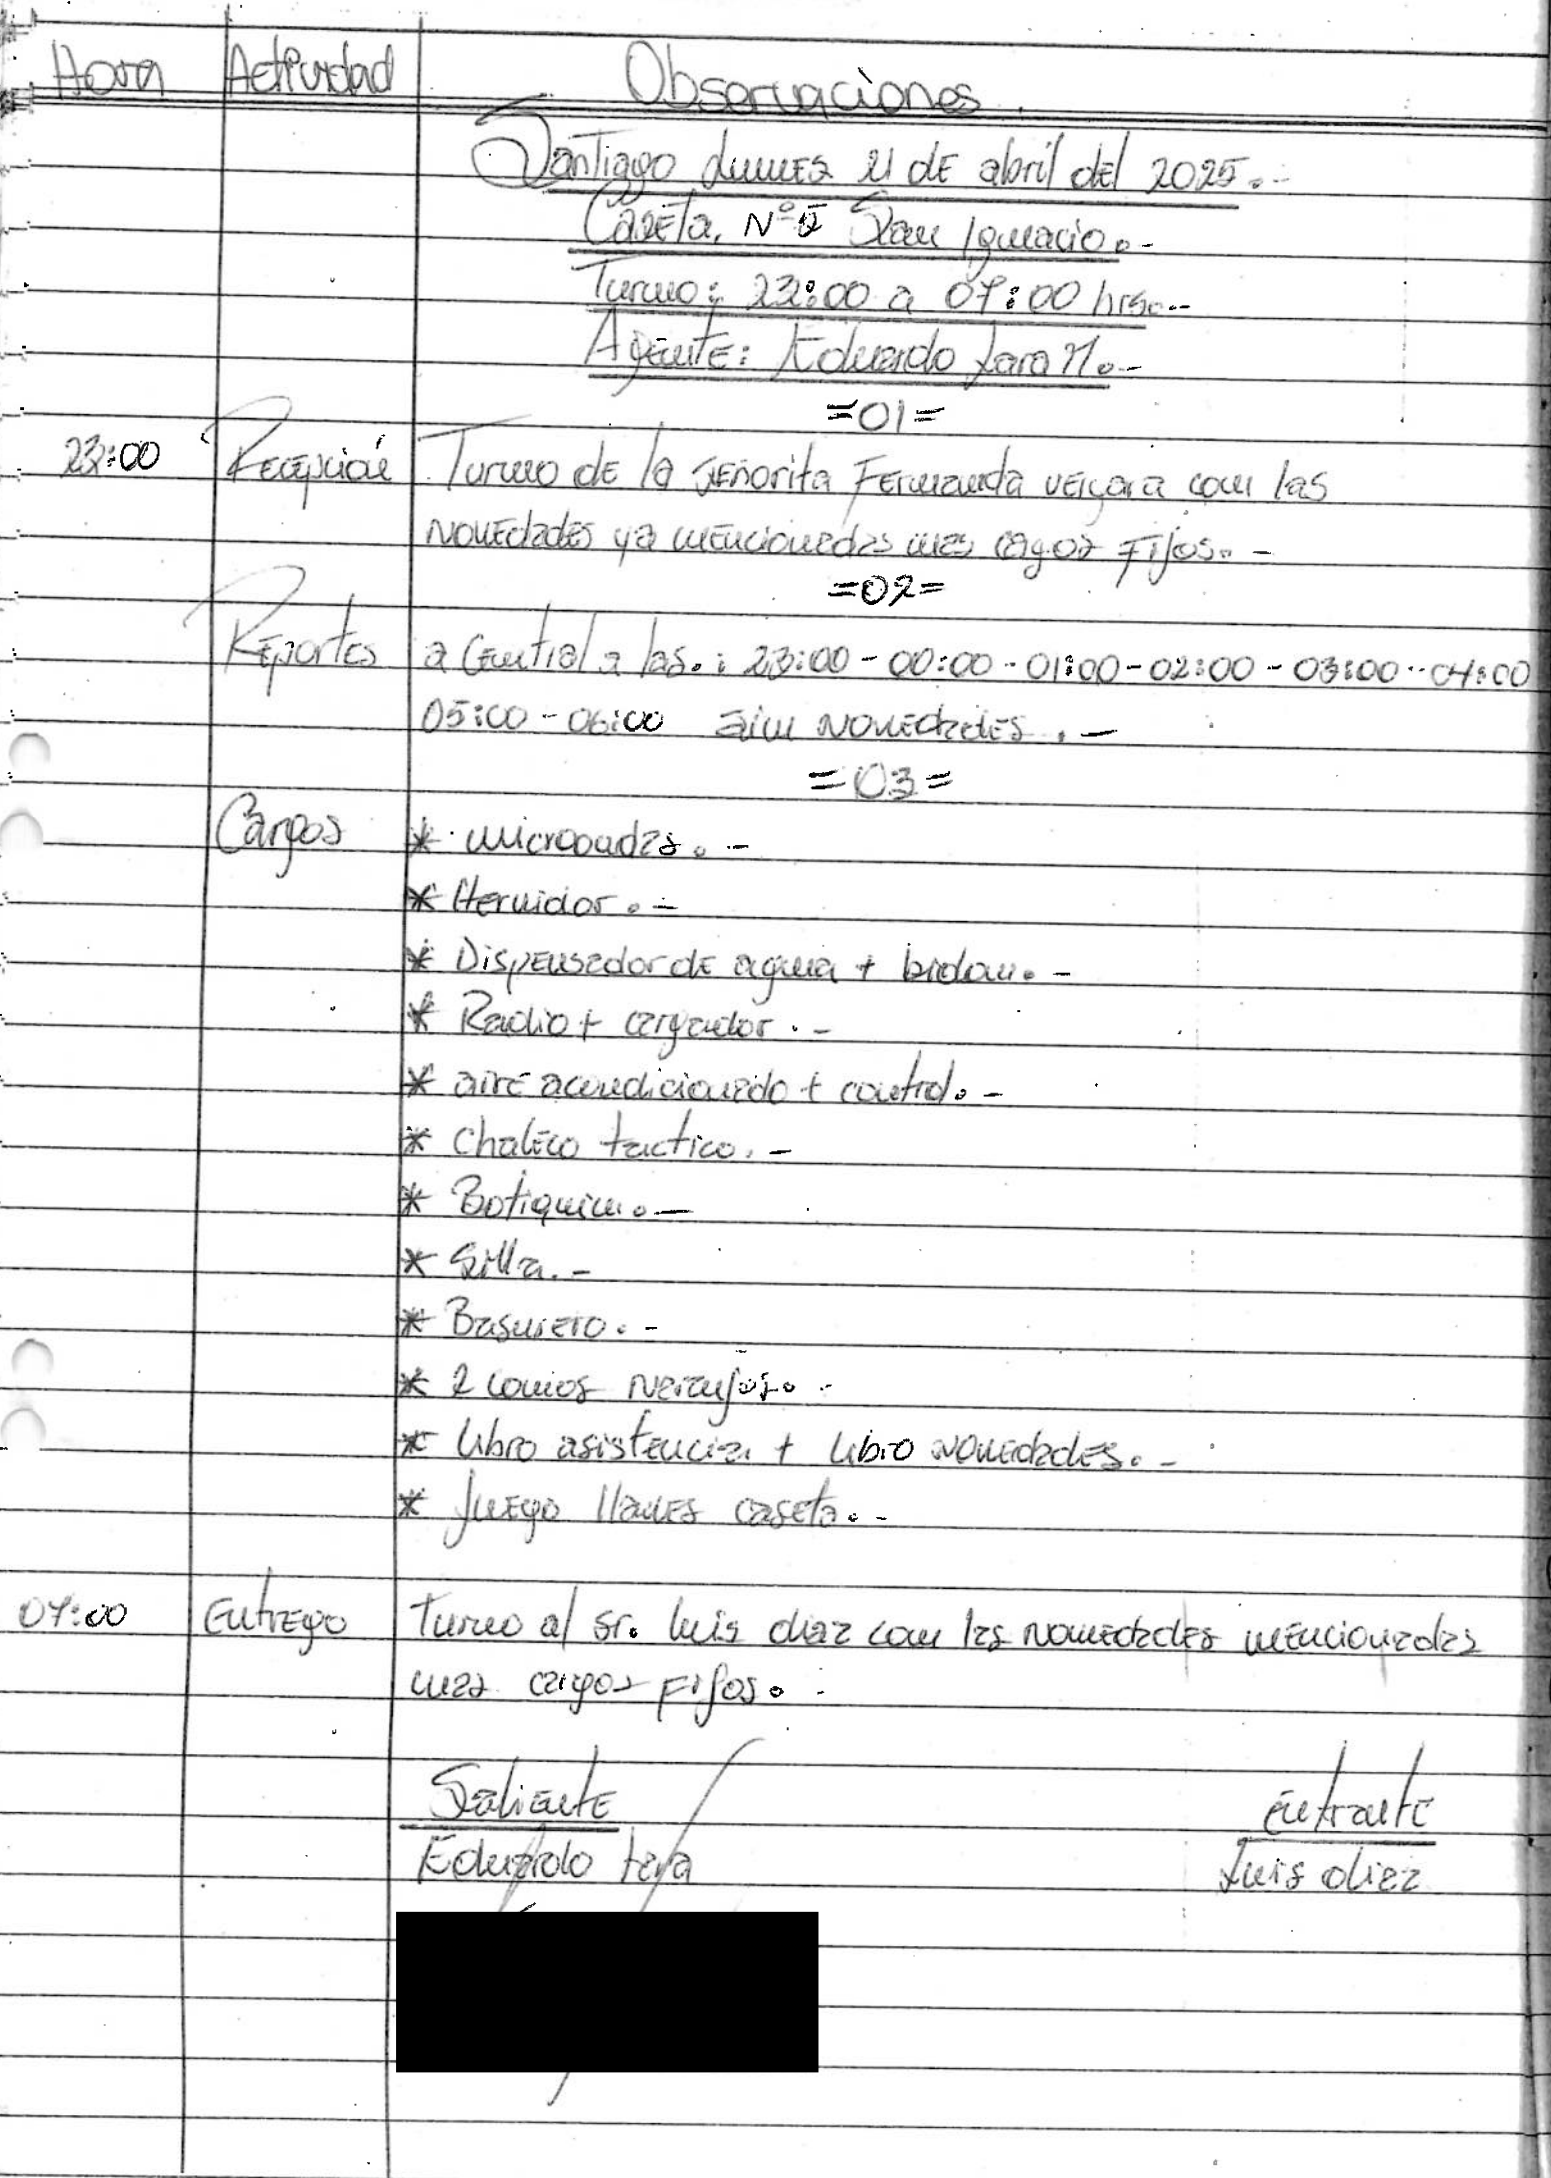 Hora Actividad Observaciones.
Santiago lunes 21 de abril del 2025.-
Caseta. N° San Ignacio.-
Turno: 23:00 a 07:00 hrs.-
Agente: Eduardo Jara M.-
=01=
23:00 Recepción Turno de la señorita Fernanda vergara con las
novedades ya mencionadas mas cargos Fijos.-
=02=
Reportes a Central a las.: 23:00 - 00:00 - 01:00 - 02:00 - 03:00 - 04:00
05:00 - 06:00 sin novedades.-
=03=
Cargos * microondas.-
* Hervidor.-
* Dispensador de agua + bidon.-
* Radio + cargador.-
* aire acondicionado + control.-
* Chaleco tactico.-
* Botiquin.-
* Silla.-
* Basurero.-
* 2 conos naranjos.-
* libro asistencia + libro novedades.-
* Juego llaves caseta.-
07:00 Entrego Turno al sr. luis diaz con las novedades mencionadas
mas cargos Fijos.-
Saliente entrante
Eduardo Jara Luis diaz